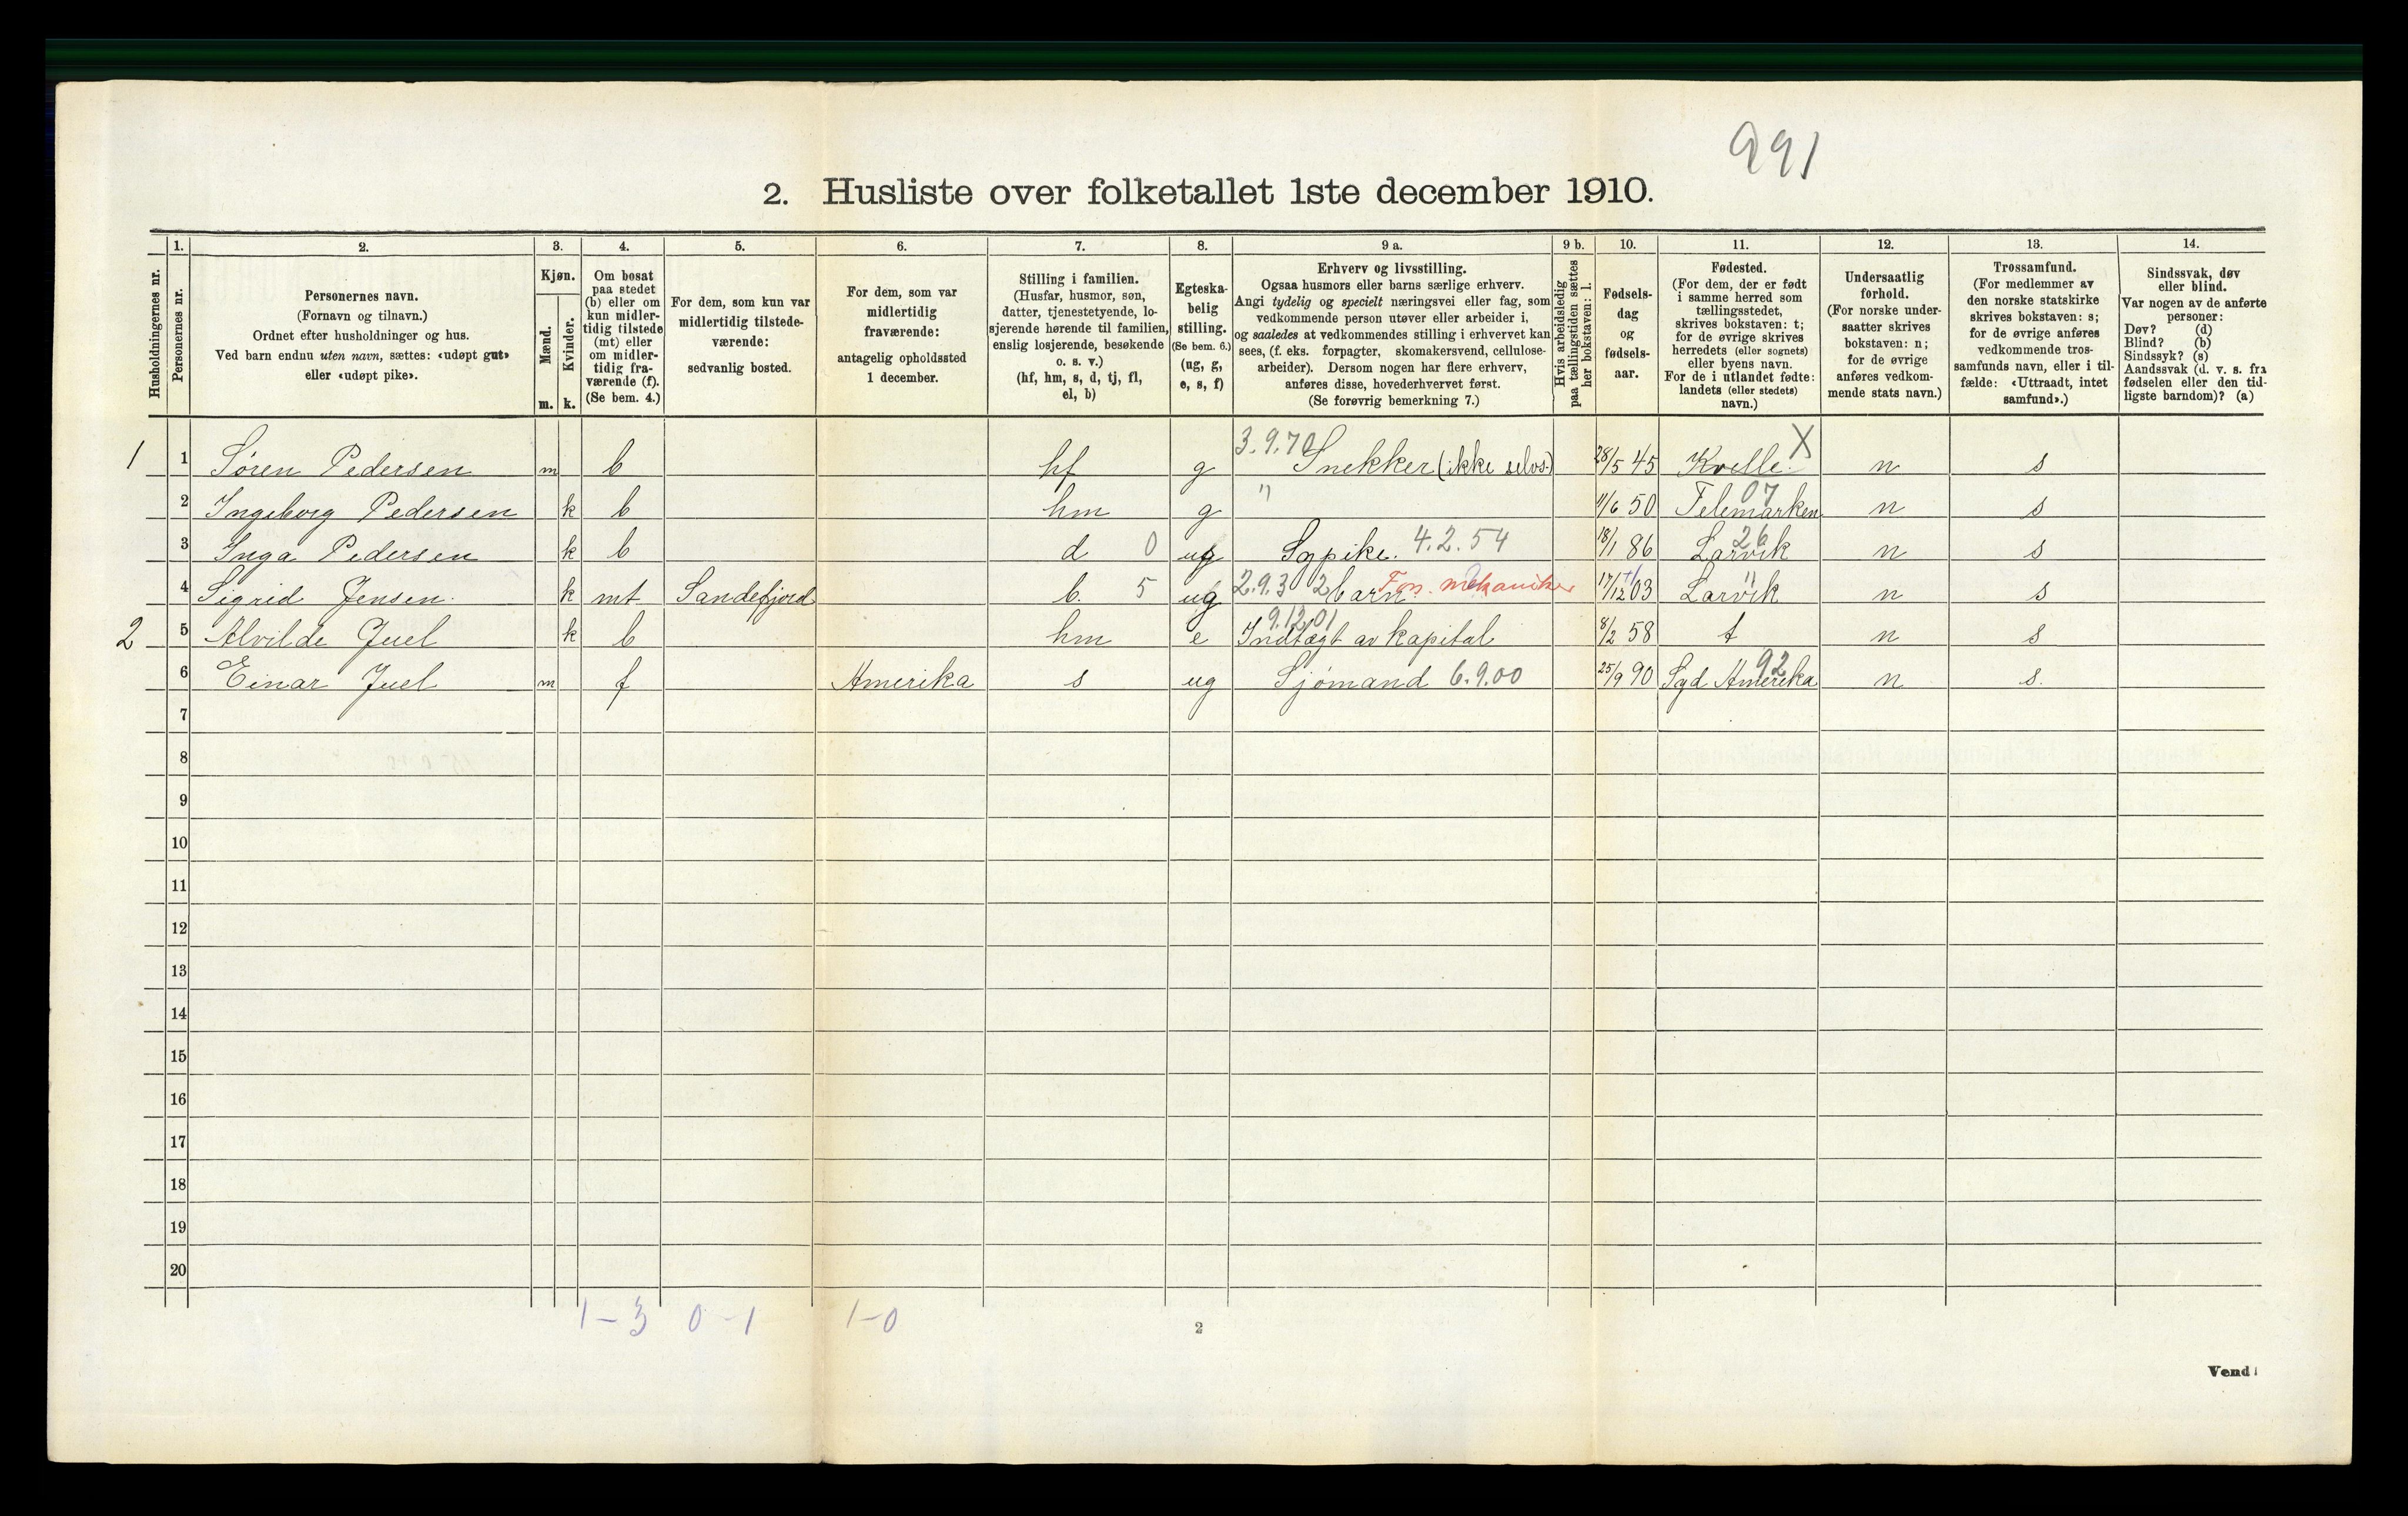 991
2. Husliste over folketallet 1ste december 1910.
Husholdningernes nr.
1.
Personernes nr.
2.
Personernes navn.
(Fornavn og tilnavn.)
Ordnet efter husholdninger og hus.
Ved barn endnu uten navn, sættes: «udøpt gut»
eller «udøpt pike».
3.
Kjøn.
Mænd.
Kvinder.
m. k.
4.
Om bosat
paa stedet
(b) eller om
kun midler-
tidig tilstede
(mt) eller
om midler-
tidig fra-
værende (f).
(Se bem. 4.)
5.
For dem, som kun var
midlertidig tilstede-
værende:
sedvanlig bosted.
6.
For dem, som var
midlertidig
fraværende:
antagelig opholdssted
1 december.
7.
Stilling i familien.
(Husfar, husmor, søn,
datter, tjenestetyende, lo-
sjerende hørende til familien,
enslig losjerende, besøkende
o. s. v.)
(hf, hm, s, d, tj, fl,
el, b)
8.
Egteska-
belig
stilling.
(Se bem. 6.)
(ug, g,
e, s, f)
9 a.
Erhverv og livsstilling.
Ogsaa husmors eller barns særlige erhverv.
Angi tydelig og specielt næringsvei eller fag, som
vedkommende person utøver eller arbeider i,
og saaledes at vedkommendes stilling i erhvervet kan
sees, (f. eks. forpagter, skomakersvend, cellulose-
arbeider). Dersom nogen har flere erhverv,
anføres disse, hovederhvervet først.
(Se forøvrig bemerkning 7.)
9 b.
Hvis arbeidsledig
paa tællingstiden sættes
her bokstaven: l.
10.
Fødsels-
dag
og
fødsels-
aar.
11.
Fødested.
(For dem, der er født
i samme herred som
tællingsstedet,
skrives bokstaven: t;
for de øvrige skrives
herredets (eller sognets)
eller byens navn.
For de i utlandet fødte:
landets (eller stedets)
navn.)
12.
Undersaatlig
forhold.
(For norske under-
saatter skrives
bokstaven: n;
for de øvrige
anføres vedkom-
mende stats navn.)
13.
Trossamfund.
(For medlemmer av
den norske statskirke
skrives bokstaven: s;
for de øvrige anføres
vedkommende tros-
samfunds navn, eller i til-
fælde: «Uttraadt, intet
samfund».)
14.
Sindssvak, døv
eller blind.
Var nogen av de anførte
personer:
Døv? (d)
Blind? (b)
Sindssyk? (s)
Aandssvak (d. v. s. fra
fødselen eller den tid-
ligste barndom)? (a)
3.9.70 X
1 1 Søren Pedersen m b hf g Snekker (ikke selvs.) 28/5 45 Kvelle. n s
" 07
2 Ingeborg Pedersen k b hm g 4/6 50 Telemarken n s
26
3 Inga Pedersen k b d 0 ug Sypike. 4.2.54 18/1 86 Larvik n s
"
4 Sigrid Jensen. k mt Sandefjord b. 5 ug 2.9.3 barn. Fors. mekaniker 17/12 03 Larvik n s
9.12.01
2 5 Alvilde Juel k b hm e Indtægt av kapital 8/2 58 t n s
92
6 Einar Juel m f Amerika s ug Sjömand 6.9.00 25/9 90 Syd Amerika n s.
7
8
9
10
11
12
13
14
15
16
17
18
19
20
1-3 0-1 1-0
2
Vend!